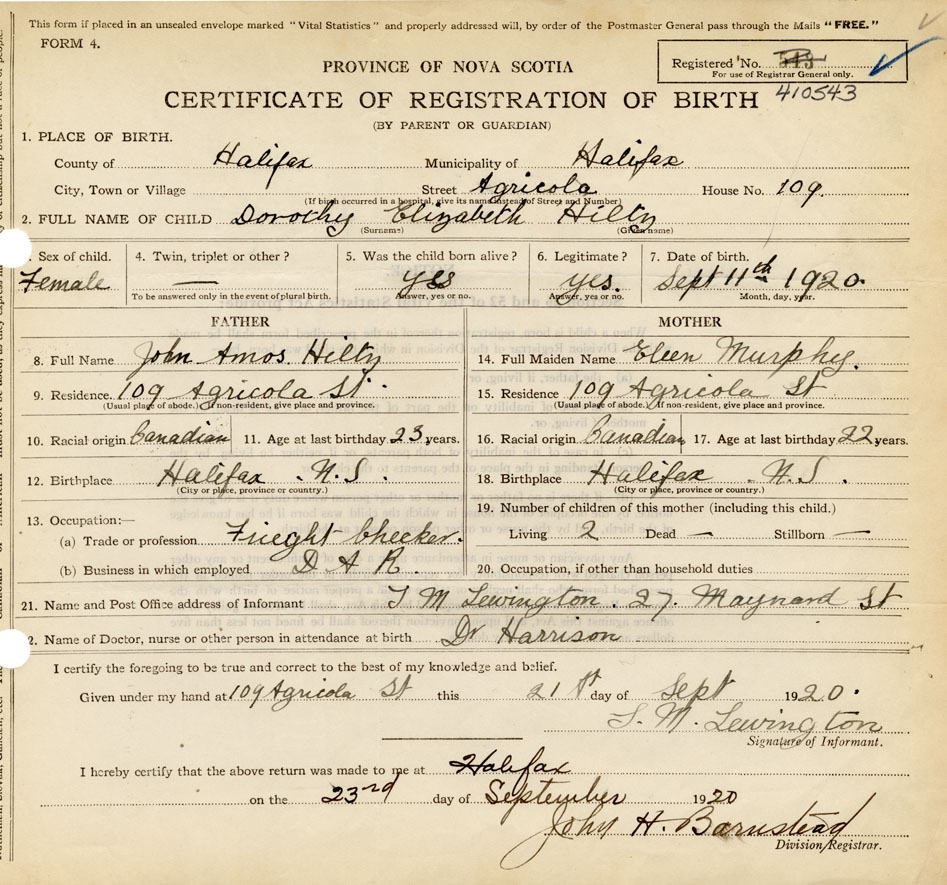 This form if placed in an unsealed envelope marked "Vital Statistics" and properly addressed will, by order of the Postmaster General pass through the Mails "FREE."
FORM 4.
Registered No.
For use of Registrar General only.
410543
PROVINCE OF NOVA SCOTIA
CERTIFICATE OF REGISTRATION OF BIRTH
(BY PARENT OR GUARDIAN)
1. PLACE OF BIRTH.
County of Halifax Municipality of Halifax
City, Town or Village Street Agricola House No. 109.
(If birth occurred in a hospital, give its name instead of Street and Number)
2. FULL NAME OF CHILD Dorothy Elizabeth Hilty
(Surname) (Given name)
Sex of child. 4. Twin, triplet or other? 5. Was the child born alive? 6. Legitimate? 7. Date of birth.
Female — yes yes. Sept 11th 1920.
To be answered only in the event of plural birth. Answer, yes or no. Answer, yes or no. Month, day, year.
FATHER MOTHER
8. Full Name John Amos Hilty 14. Full Maiden Name Eleen Murphy.
9. Residence. 109 Agricola St. 15. Residence 109 Agricola St
(Usual place of abode.) If non-resident, give place and province. (Usual place of abode.) If non-resident, give place and province.
10. Racial origin Canadian 11. Age at last birthday 23 years. 16. Racial origin Canadian 17. Age at last birthday 22 years.
12. Birthplace Halifax . N.S . 18. Birthplace Halifax . N.S .
(City or place, province or country.) (City or place, province or country.)
19. Number of children of this mother (including this child.)
13. Occupation:—
(a) Trade or profession Frieght Checker. Living 2 Dead — Stillborn —
(b) Business in which employed D A R. 20. Occupation, if other than household duties
21. Name and Post Office address of Informant M Lewington . 27. Maynard St
2. Name of Doctor, nurse or other person in attendance at birth Dr Harrison
I certify the foregoing to be true and correct to the best of my knowledge and belief.
Given under my hand at 109 Agricola St this 21st day of Sept 1920.
M. Lewington
Signature of Informant.
I hereby certify that the above return was made to me at Halifax
on the 23rd day of September 1920
John H. Barnstead
Division Registrar.